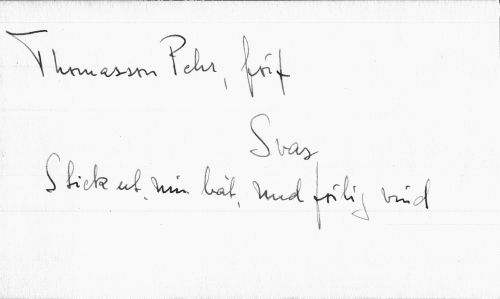 Thomasson Pehr, förf
Svar
Stick ut, min båt, med föilig vind